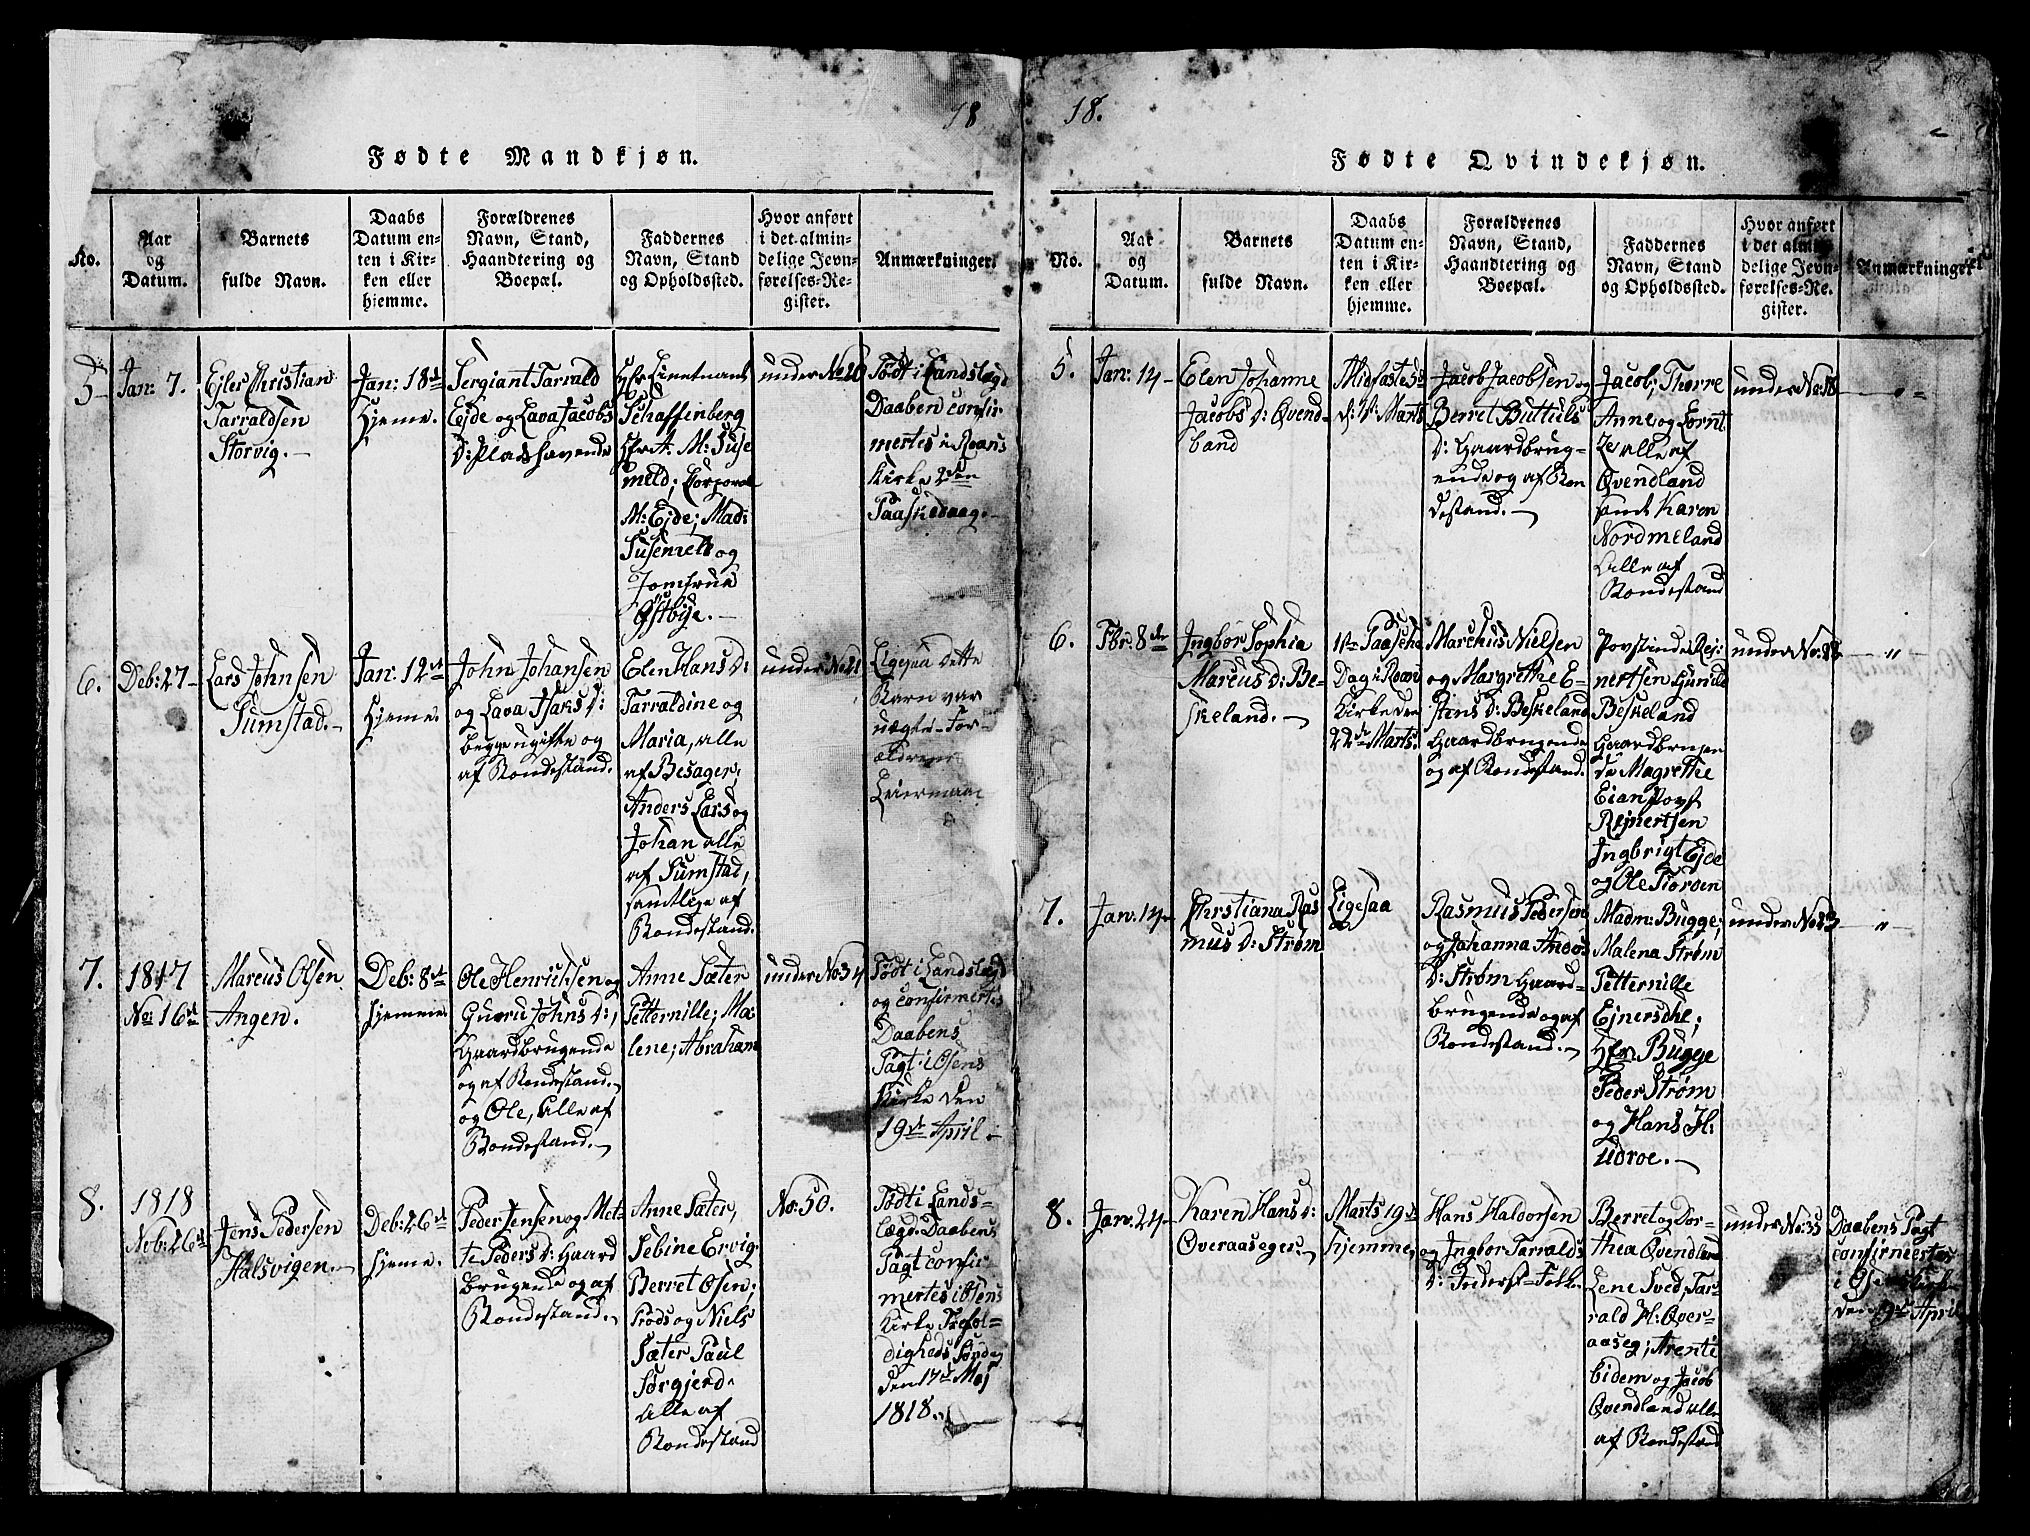 18
Fødte Mandkjøn.
No.
Aar
og
Datum.
Barnets
fulde Navn.
Daabs
Datum en-
ten i Kir-
ken eller
hjemme.
Forældrenes
Navn, Stand,
Haandtering og
Boepæl.
Faddernes
Navn, Stand
og Opholdssted.
Hvor anført
i det almin-
delige Jevn-
førelses-Re-
gister.
Anmærkninger.
5
Jan: 7.
Ejler Christian
Tarraldsen
Storvig.
Jan: 18de
Hjeme.
Sergiant Tarrald
Ejde og Lava Jacobs
D: Pladshavende
Hr Lieutnant
Schaffenberg
Hr A: M: Suse
meld; Corporal
M: Ejde; Mad:
Susemelt og
Jomfrue
Østbye.
under No 20
Født i Landsleyd
Daaben confir
mertes i Roans
Kirke 2den
Paaskedag.
6.
Deb: 27
Lars Johnsen
Sumstad.
Jan: 12te
Hjeme
John Johansen
og Lava Isaks D:
begge ugifte og
af Bondestand.
Elen Hans D:
Tarraldine og
Maria, alle
af Besager;
Anders Lars og
Johan alle
af Sumstad,
samtlige af
Bondestand.
under No 21
Ligesaa dette
Barn var
uægte. For-
ældrene
Leiermaal
7.
1817
No: 16de
Marcus Olsen
Angen.
Deb: 8de
hjemme
Ole Henrichsen og
Guru Johns D:,
Gaardbrugende
og af Bondestand.
og Ole, Alle af
Bondestand.
Anne Sæter
Petternille; Ma-
lene; Abraham
under No 34
Født i Landsleyd
og confirmertes
Daabens
Pagt i Osens
Kirke den
19de April.
8.
1818
Nob: 26de
Jens Pedersen
Halsvigen.
Deb: 26de
hjeme.
Peder Jensen og Met-
te Peders D: Gaard
brugende og af
Bondestand.
Anne Sæter,
Sebine Ervig,
Berret Osen;
Trods og Niels
Sæter Paul
Sørgjerd.
Alle af
Bondestand
No: 50.
Født i Lands-
Legd. Daabens
Pagt confir-
mertes i Osens
Kirke Trefol-
digheds Sønda
den 17de Maj
1818.
18.
Fødte Qvindekjøn.
No.
Aar
og
Datum.
Barnets
fulde Navn.
Daabs
Datum en-
ten i Kir-
ken eller
hjemme.
Forældrenes
Navn, Stand,
Haandtering og
Boepæl.
Faddernes
Navn, Stand
og Opholdssted.
Hvor anført
i det almin-
delige Jevn-
førelses-Re-
gister.
Anmærkninger.
5.
Jan: 14
Elen Johanne
Jacobs D: Qvend-
land
Midfaste S:
D: D: Marts
Jacob Jacobsen og
Berret Buttuls
D: Gaardbrug-
ende og af Bon
destand.
Jacob, Thorre
Anne og Lornt
Ze alle af
Qvendland
samt Karen
Nordmeland
Alle af
Bondestand
under No: 18
"
6.
Fbr: 8de
Ingbor Sophia
Marcus D: Be-
skeland.
1ste Paasche
Dag i Roan
Kirke den
22de Marts.
Marchus Nielsen
og Margrethe E-
stens D: Beskeland
Gaardbrugende
og af Bondestand.
Povst Rej:
nertsen Gunild
Beskeland
Gaardbrugen
de Magrethe
Eian Povst
Rejnertsen
Ingbrigt Ejde
og Ole Storøen
under No: 28
"
7.
Jan: 14
Christiana Ras
mus D: Strøm
Ligesaa
Rasmus Pedersen
og Johanna Anders
D: Strøm Gaard-
brugende og af
Bondestand.
Madm: Bugge;
Malena Strøm
Petternille
Ejnersdle;
Hr. Bugge
Peder Strøm
og Hans H:
Udroe.
under No: 33
"
8.
Jan: 24
Karen Hans D:
Overaaseger
Marts 19de
hjemme,
Hans Haldorsen
og Ingbor Tarralds
D: Inderst-Folk.
Berret og Dor-
thea Qvendland
Lene Sved, Tar-
rald H: Over-
aaseg; Arent i
bidem og Jacob
Qvendland alle
af Bondestand
under No: 35
Daabens Pagt
confirmertes
i Osens Kirke
den 19de April